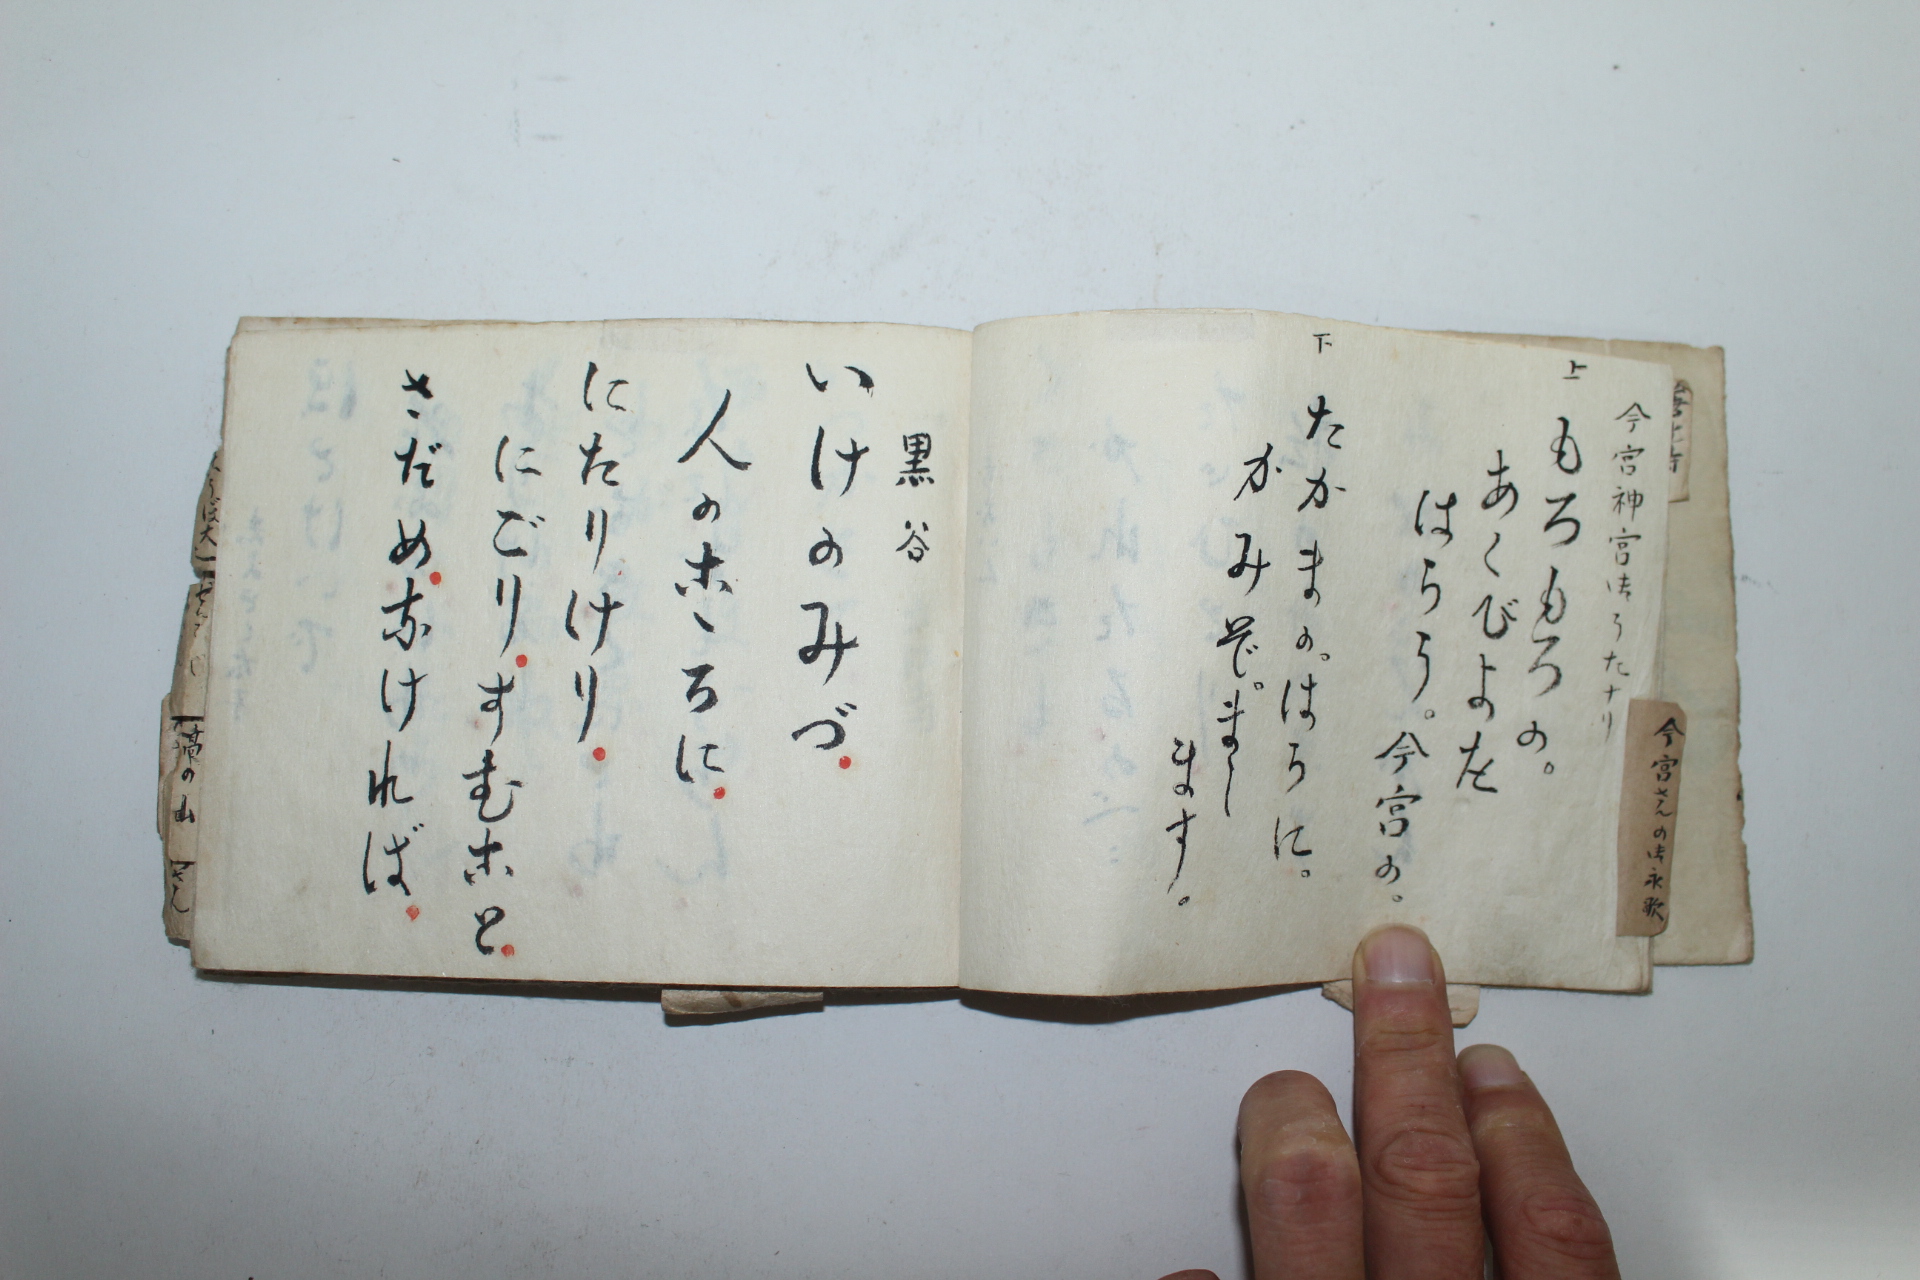 今宮さんの御永歌
今宮神宮御うたナリ
上
もろもろの。
あくびよを
はらう。今宮の。
下
たかまの。はらに。
かみぞ。まし
ます。
黒谷
いけのみづ
人のホヽろに
にたりけり
にごりすむホと
さだめなければ
高の山